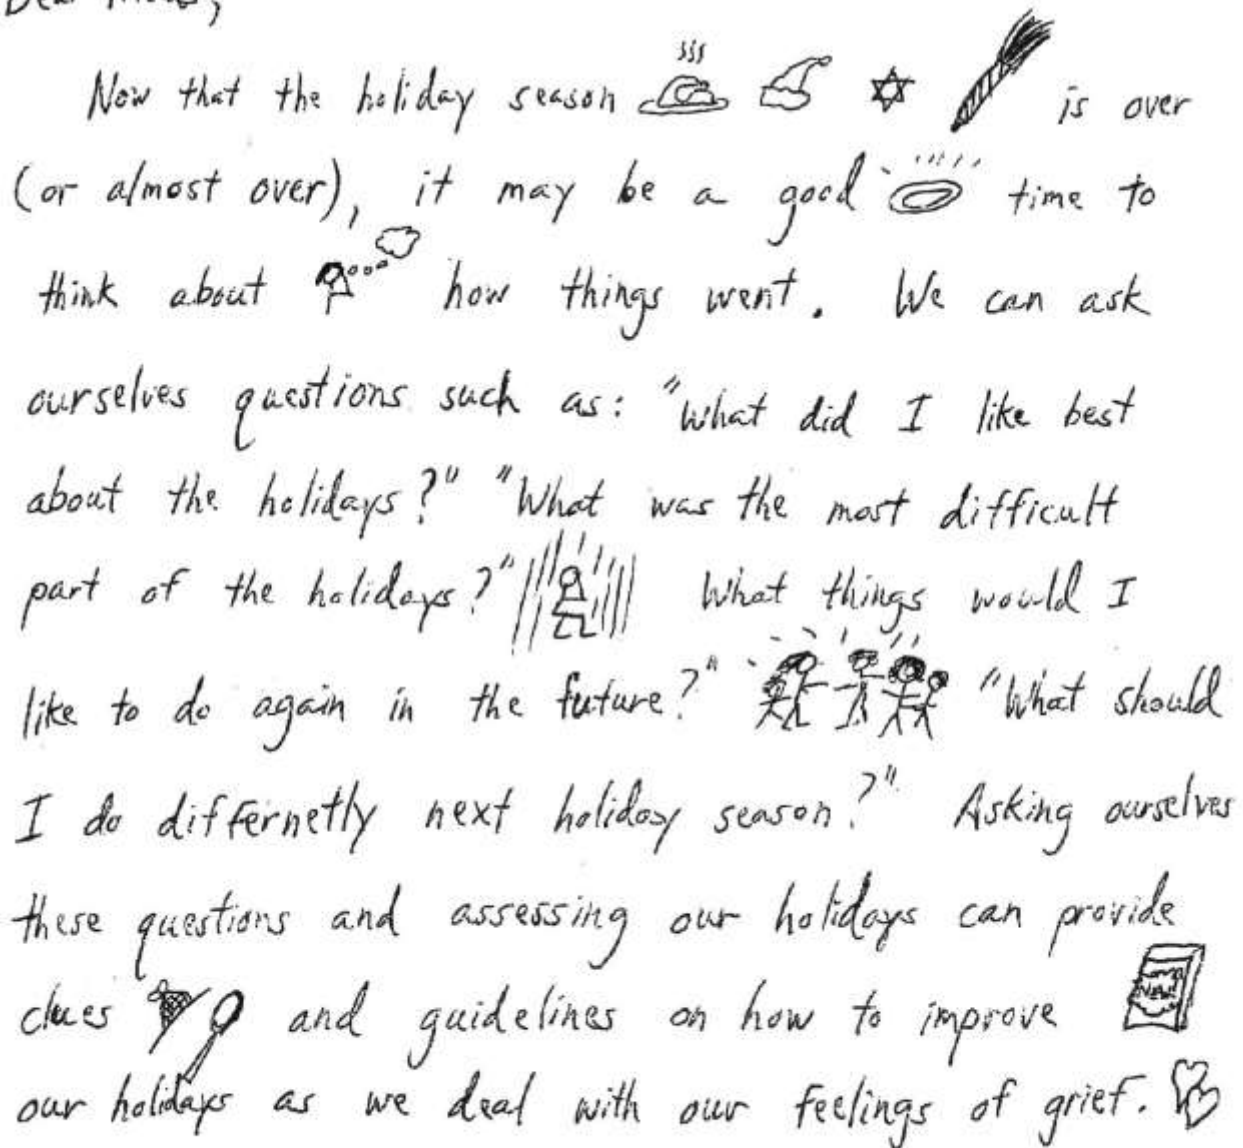 Dear Friends,
Now that the holiday season is over
(or almost over), it may be a good time to
think about how things went. We can ask
ourselves questions such as: "What did I like best
about the holidays?" "What was the most difficult
part of the holidays?" What things would I
like to do again in the future?" "What should
I do differnetly next holiday season?" Asking ourselves
these questions and assessing our holidays can provide
clues and guidelines on how to improve
NEW!
our holidays as we deal with our feelings of grief.